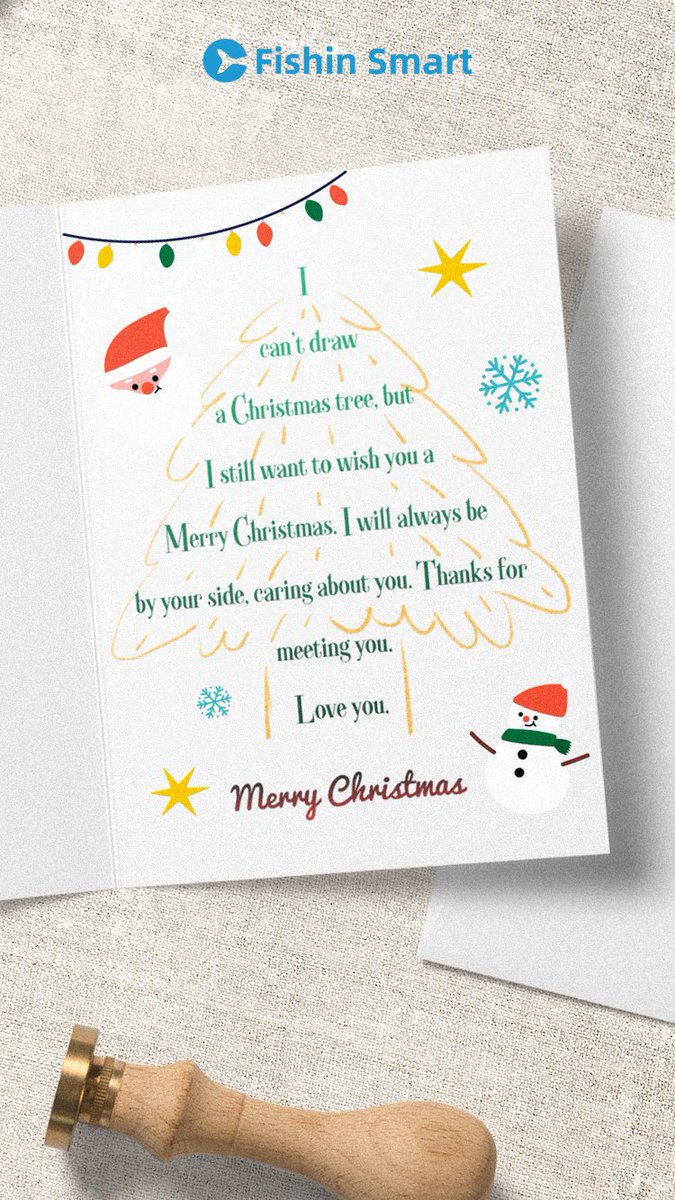 Fishin Smart
I
can't draw
a Christmas tree, but
I still want to wish you a
Merry Christmas. I will always be
by your side, caring about you. Thanks for
meeting you.
Love you.
Merry Christmas